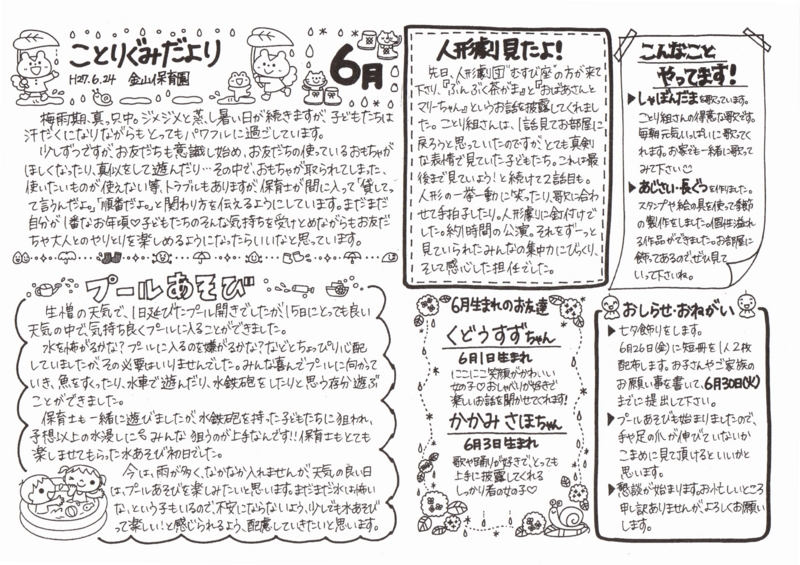 ことりぐみだより
H27.6.24 金山保育園
6月
梅雨期、真っ只中。ジメジメと蒸し暑い日が続きますが、子どもたちは
汗だくになりながらもとってもパワフルに過ごしています。
少しずつですが、お友だちも意識し始め、お友だちの使っているおもちゃが
ほしくなったり、真似をして遊んだり…その中で、おもちゃが取られてしました、
使いたいものが使えない等、トラブルもありますが、保育士が間に入って「貸してっ
て言うんだよ。」「順番だよ。」と関わり方を伝えるようにしています。まだまだ
自分が1番なお年頃♡子どもたちのそんな気持ちを受けとめながらもお友だ
ちや大人とのやりとりを楽しめるようになったらいいなと思っています。
プールあそび
生憎の天気で、1日延びたプール開きでしたが15日にとっても良い
天気の中で気持ち良くプールに入ることができました。
水を怖がるかな?プールに入るのを嫌がるかな?などとちょっぴり心配
していましたが、その必要はいりませんでした。みんな喜んでプールに向かって
いき、魚をすくったり、水車で遊んだり、水鉄砲をしたりと思う存分遊ぶ
ことができました。
保育士も一緒に遊びましたが、水鉄砲を持った子どもたちに狙われ、
予想以上の水浸しに。みんな狙うのが上手なんです!!保育士もとても
楽しませてもらった水あそび初日でした。
今は、雨が多く、なかなか入れませんが、天気の良い日
は、プールあそびを楽しみたいと思います。まだまだ水は怖い
な、という子もいるので、不安にならないよう、少しでも水あそび
って楽しい!と感じられるよう、配慮していきたいと思います。
人形劇見たよ!
先日、人形劇団“むすび座”の方が来て
下さり、『ぶんぶく茶がま』と『おばあさんと
マリーちゃん』というお話を披露してくれまし
た。ことり組さんは、1話見てお部屋に
戻ろうと思っていたのですが、とても真剣
な表情で見ていた子どもたち。これは最
後まで見ていよう!と続けて2話目も。
人形の一挙一動に笑ったり、歌に合わ
せて手拍子したり。人形劇に釘付けで
した。約1時間の公演。それをずーっと
見ていられたみんなの集中力にびっくり、
そして感心した担任でした。
6月生まれのお友達
くどうすずちゃん
6月1日生まれ
にこにこ笑顔がかわいい
女の子♡おしゃべりが好きで
楽しいお話を聞かせてくれます!
かかみ さほちゃん
6月3日生まれ
歌や踊りが好きで、とっても
上手に披露してくれる
しっかり者の女の子♡
こんなこと
やってます!
▶しゃぼんだまを歌っています。
ことり組さんの得意な歌です。
毎朝元気いっぱいに歌ってく
れます。お家でも一緒に歌って
みて下さい♡
▶あじさい・長ぐつを作りました。
スタンプや絵の具を使って季節
の製作をしました。個性溢れ
る作品ができました。お部屋に
飾ってあるので、ぜひ見て
いって下さいね。
おしらせ・おねがい
▶七夕飾りをします。
6月26日(金)に短冊を1人2枚
配布します。お子さんやご家族の
お願い事を書いて、6月30日(火)
までに提出して下さい。
▶プールあそびも始まりましたので、
手や足の爪が伸びていないか
こまめに見て頂けるといいかと
思います。
▶懇談が始まります。お忙しいところ
申し訳ありませんが、よろしくお願い
します。